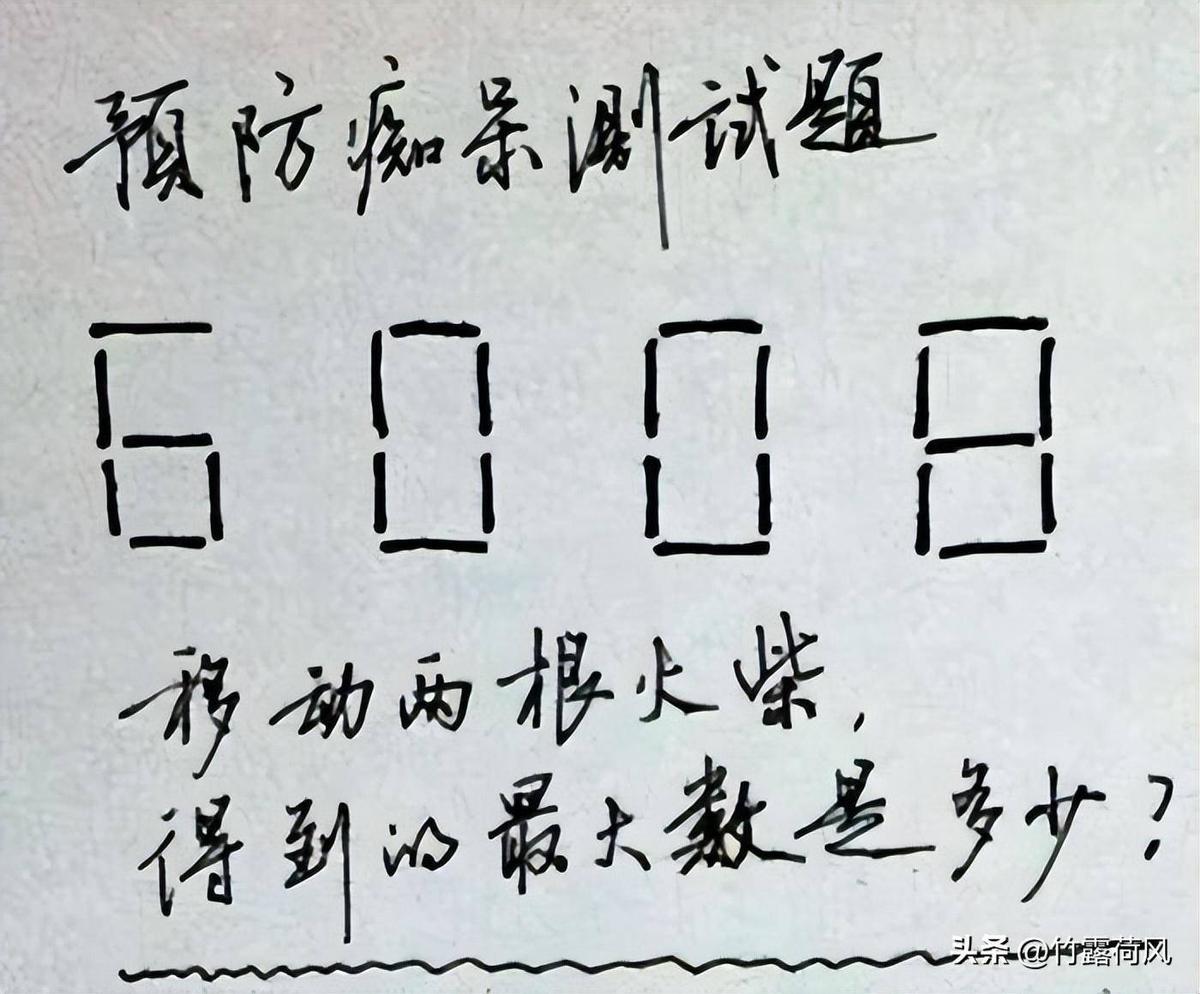 预防痴呆测试题
6008
移动两根火柴,
得到的最大数是多少?
头条 @竹露荷风